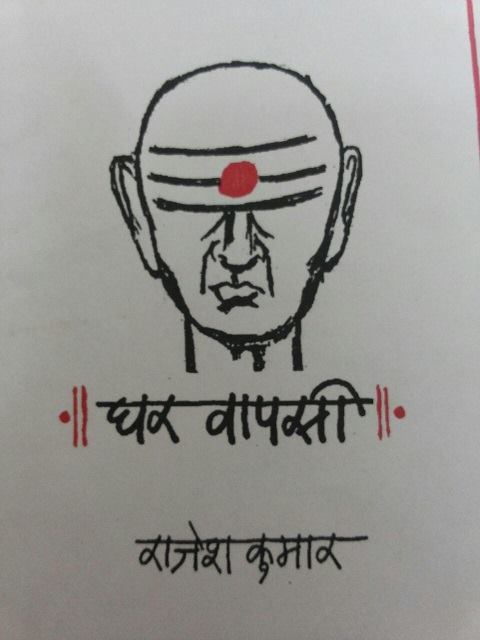 ॥ घर वापसी ॥
राजेश कुमार